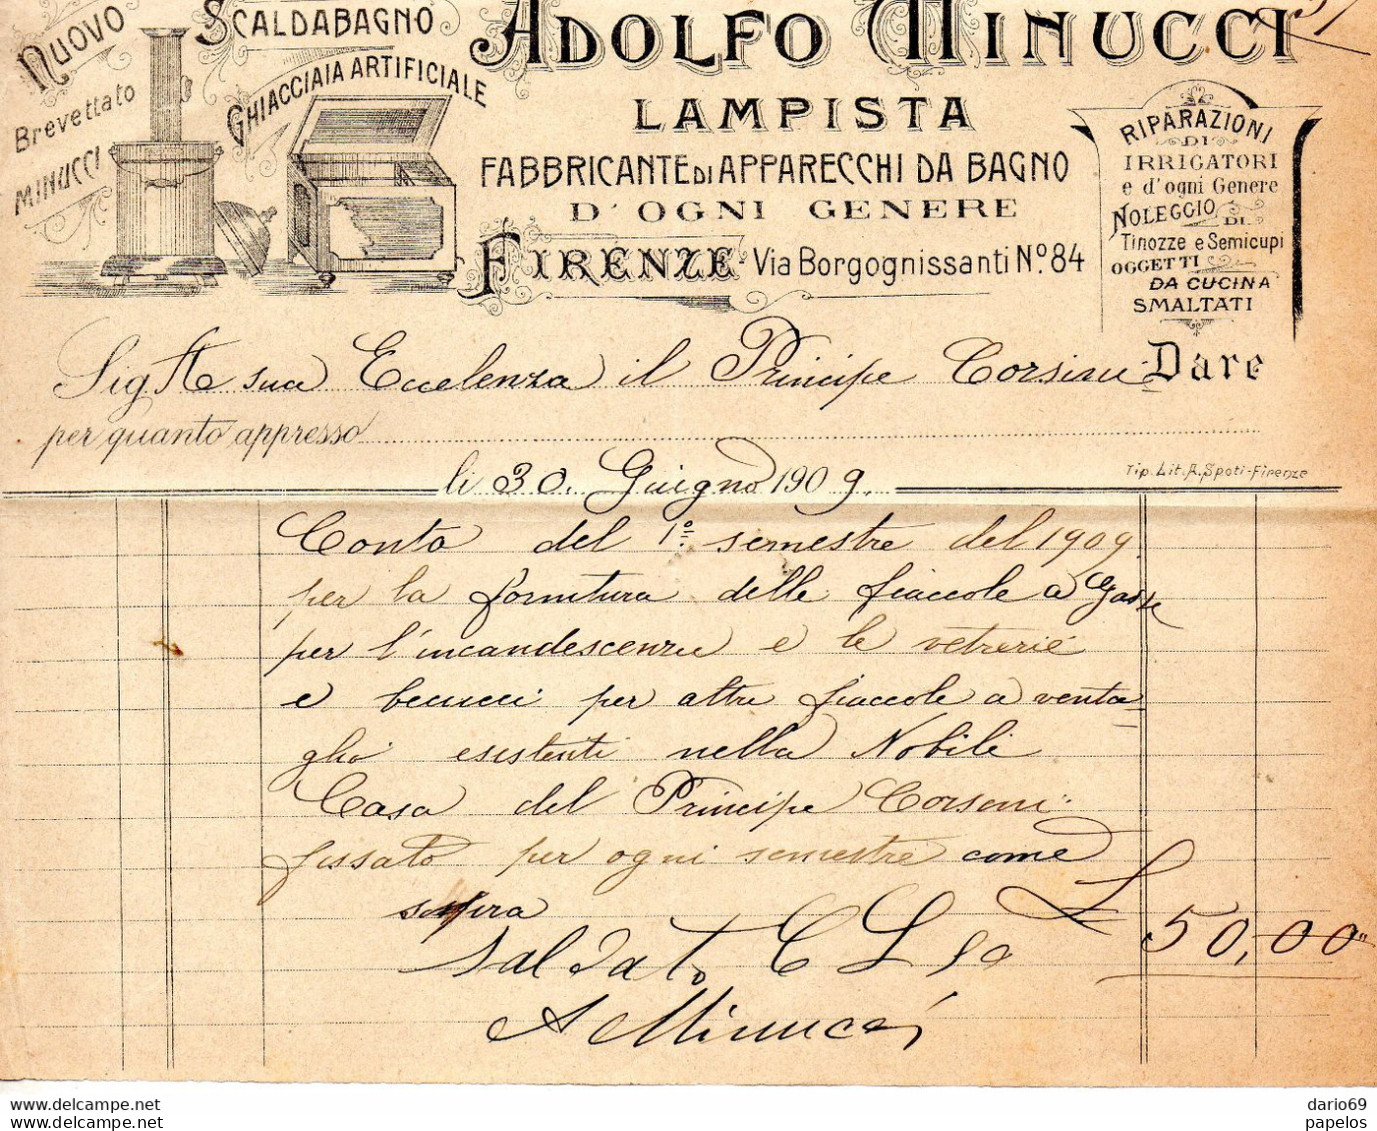 NUOVO
Brevettato
MINUCCI
SCALDABAGNO
GHIACCIAIA ARTIFICIALE
ADOLFO MINUCCI
LAMPISTA
FABBRICANTE DI APPARECCHI DA BAGNO
D'OGNI GENERE
FIRENZE - Via Borgognissanti Nº. 84
RIPARAZIONI
DI
IRRIGATORI
e d'ogni Genere
NOLEGGIO
DI
Tinozze e Semicupi
OGGETTI
DA CUCINA
SMALTATI
Sig. A sua Eccelenza il Principe Corsini Dare
per quanto appresso
Tip. Lit. A. Spoti - Firenze
li 30. Guigno 1909.
Conto del 1º semestre del 1909
per la fornitura delle fiaccole a
per l'incandescenza e le vetrerie
e beccucci per altre fiaccole a venta=
glio esistenti nella Nobile
Casa del Principe Corsini
fissato per ogni semestre come
sopra £ 50,00
Saldato
A Minucci
www.delcampe.net
www.delcampe.net
dario69
papelos